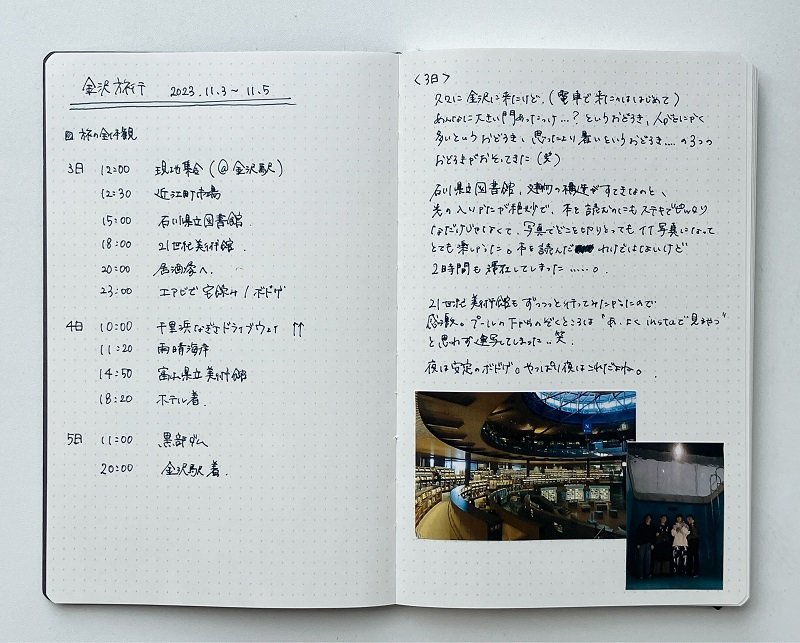 金沢旅行 2023.11.3〜11.5
旅の全体観
3日 12:00 現地集合(@金沢駅)
12:30 近江町市場
15:00 石川県立図書館
18:00 21世紀美術館
20:00 居酒屋へ
23:00 エアビで宅飲み/ボドゲ
4日 10:00 千里浜なぎさドライブウェイ ↑↑
11:20 雨晴海岸
14:50 富山県立美術館
18:20 ホテル着.
5日 11:00 黒部ダム
20:00 金沢駅着.
<3日>
久々に金沢に来たけど、(電車で来たのははじめて)
あんなに大きい門あったっけ…?というおどろき、人がとにかく
多いというおどろき、思ったより暑いというおどろき….の3つの
おどろきがおそってきた(笑)
石川県立図書館、建物の構造がすてきなのと、
光の入りかたが絶妙で、本を読むのにもステキでぴったり
なだけじゃなくて、写真でどこを切りとっても イイ写真になって
とても楽しかった。本を読んだ わけではないけど
2時間も滞在してしまった……。
21世紀美術館もずっっっと行ってみたかったので
感激。プールの下からのぞくところは "あ、よくinstaで見るやつ"
と思わず連写してしまった..笑
夜は安定のボドゲ。やっぱり夜はこれだよね。